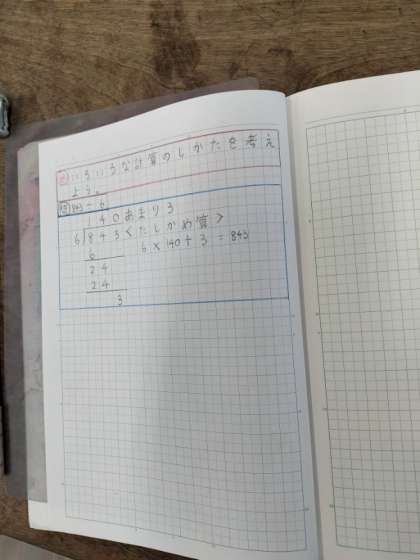 め いろいろな計算のしかたを考え
よう。
問 843÷6
140あまり3
6)843 <たしかめ算>
6 6×140+3=843
24
24
3